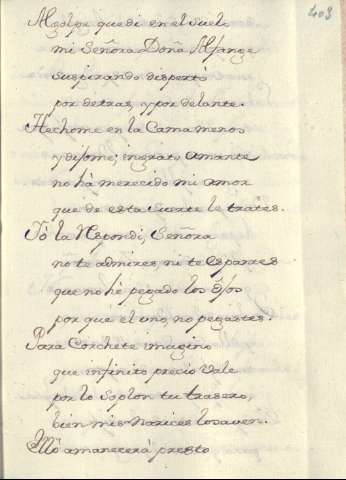 403
Al golpe que di en el suelo
mi Señora Doña Alfange
suspirando dispertò
por detras, y por delante.
Hechome en la Cama menos
y dijome, ingrato amante
no hà merecido mi amor
que de esta suerte le trates.
Yò la Respondi, Señora
no te admires, ni te espantes
que no hè pegado los Ojos
por que el uno, no pegastes.
Para Corchete imagino
que infinito precio vale
por lo soplon tu trasero,
bien mis narices lo saven.
amanecerà presto